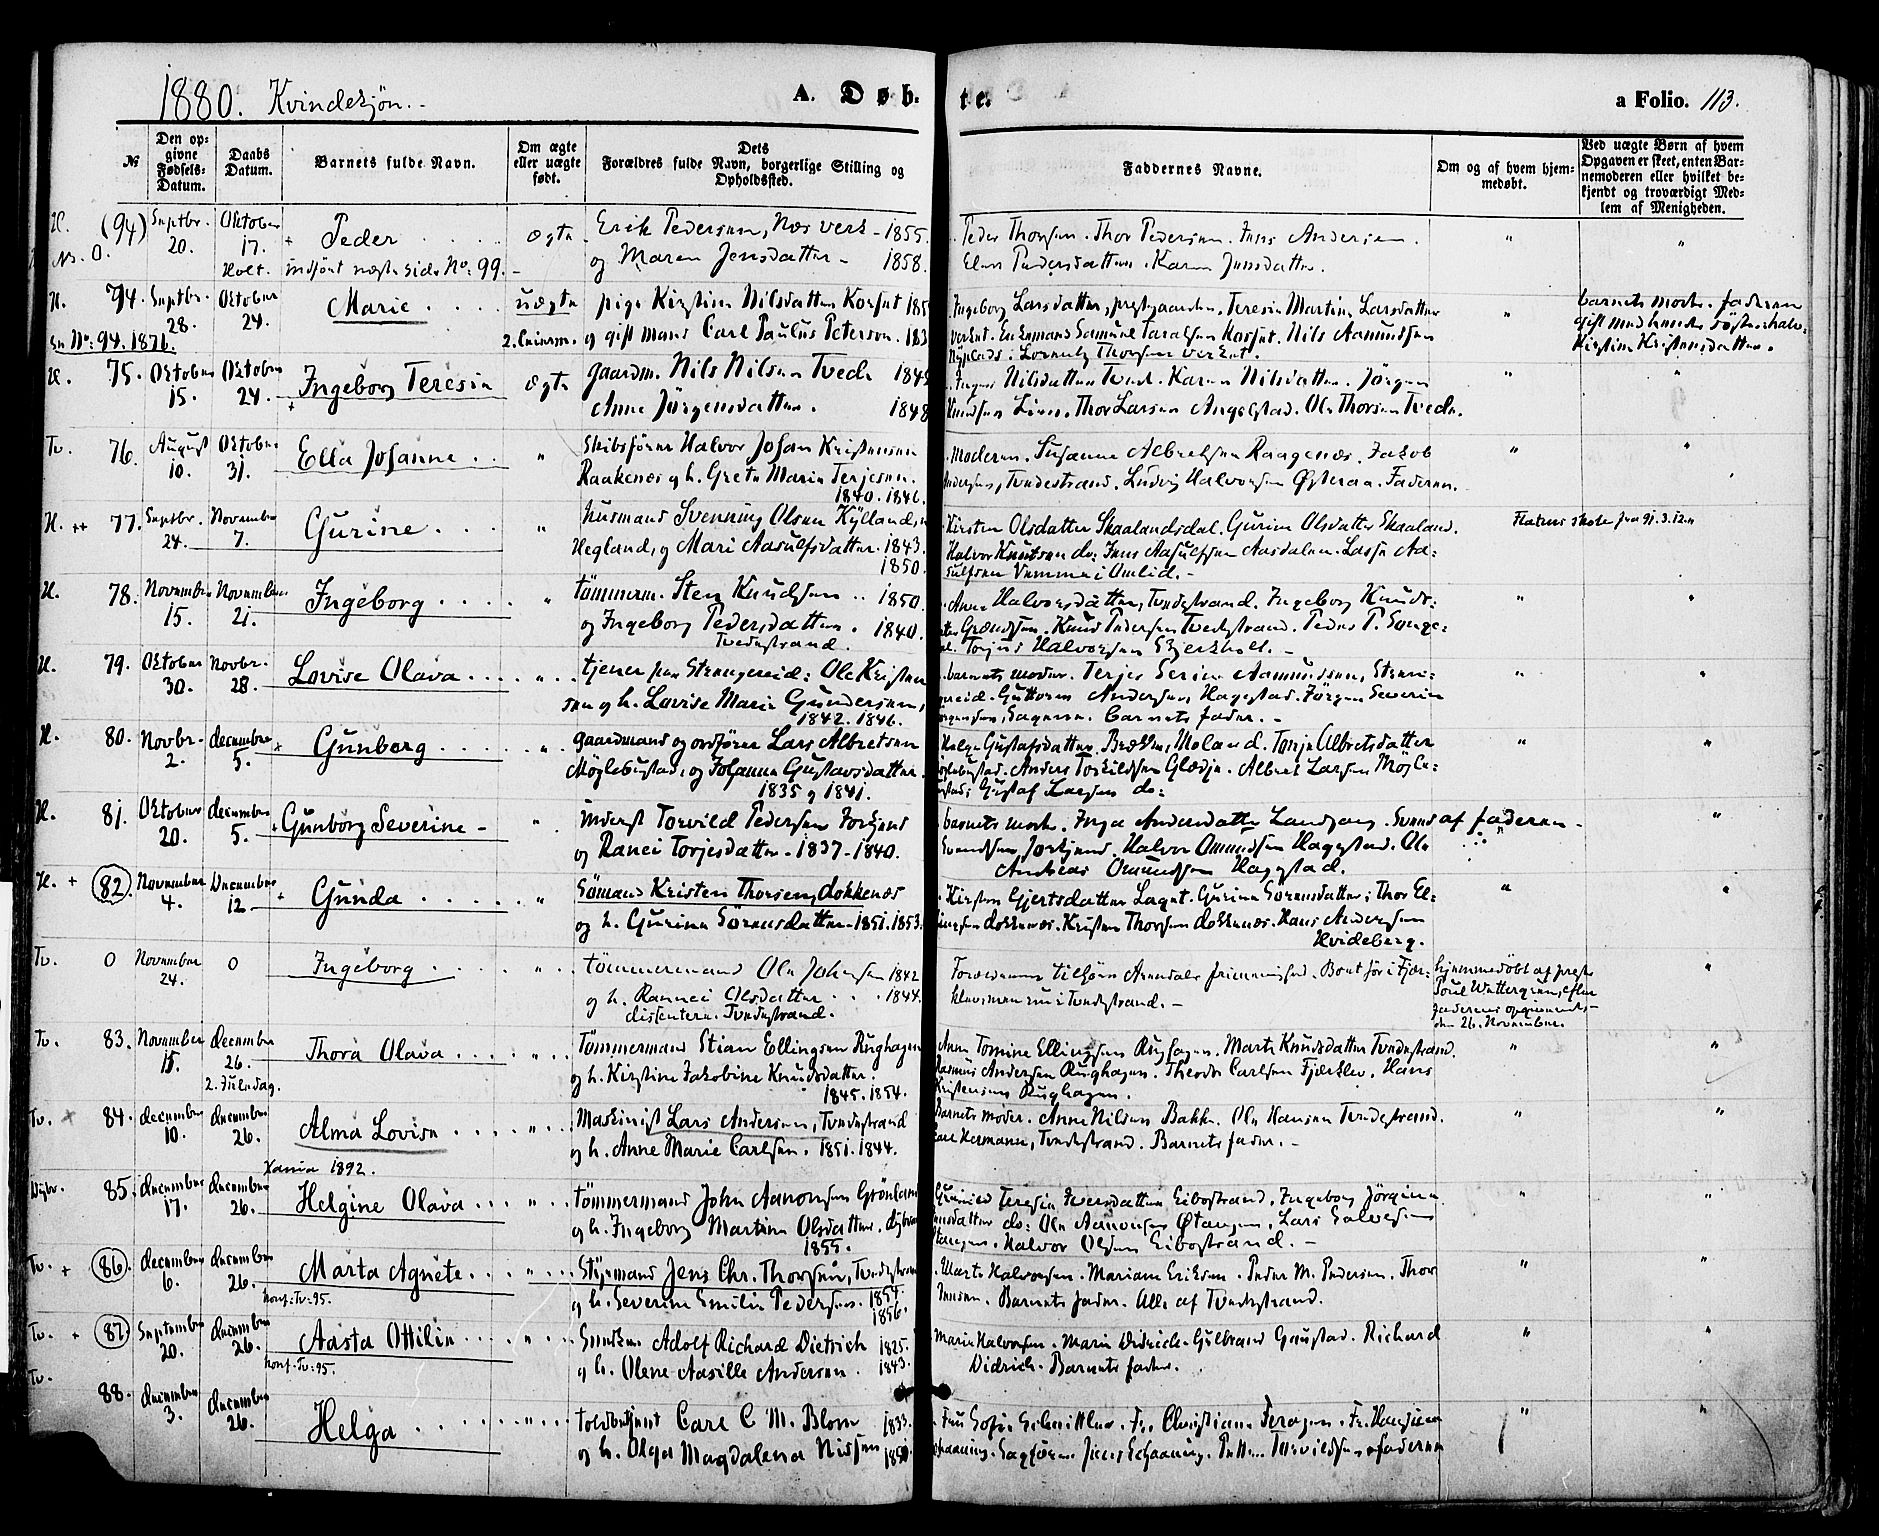 1880. Kvindekjøn.
A. Døb-
te.
a Folio. 113.
№
Den op-
givne
Fødsels-
Datum.
Daabs
Datum.
Barnets fulde Navn.
Om ægte
eller uægte
født.
Dets
Forældres fulde Navn, borgerlige Stilling og
Opholdssted.
Faddernes Navne.
Om og af hvem hjem-
medøbt.
Ved uægte Børn af hvem
Opgaven er skeet, enten Bar-
nemoderen eller hvilket be-
kjendt og troværdigt Med-
lem af Menigheden.
H. (94) Septbr. 20. Oktober 17. Peder ægte Erik Pedersen, Næs verk - 1855.
Holt. indført næste side No: 99. og Maren Jensdatter - 1858.
Peder Thorsen. Thor Pedersen. Jens Andersen.
Elen Pedersdatter. Karen Jensdatter.
H. 74. Septbr. 28. Oktober 24. Marie uægte pige Kirstine Nilsdatter
Se No: 94. 1876. og gift mand Carl Paulus Peterson.
Ingeborg Larsdatter, prestgaarden. Teresie Martine Larsdatter
Enkemand Samuel Taralsen. Nils Aamundsen
barnets moder. faderen
gift med hendes
Kirstine Kristensdatter.
H. 75. Oktober 15. Oktober 24. Ingeborg Teresie ægte gaardm. Nils Nilsen Tvede
Anne Jörgensdatter. 1848
Nilsdatter Tvede. Karen Nilsdatter. Jörgen
Knudsen Lien. Thor Larsen Angelstad. Ole Thorsen Tvede.
Tv. 76. August 10. Oktober 31. Ella Johanne Skibsförer Halvor Johan Kristensen
Raakenæs og h. Grete Marie Terjesen.
1840. 1846.
Moderen. Susanne Albretsen Raagenæs. Jakob
Tvedestrand. Ludvig Halvorsen Østeraa. Faderen.
H. ++ 77. Septbr. 24. November 7. Gurine husmand Svenning Olsen Kylland,
Hegland, og Mari Aasulfsdatter. 1843.
1850.
Kirsten Olsdatter Skaalandsdal. Gurine Olsdatter Skaaland.
Halvor Knutsen do: Jens Aasulfsen Aasdalen. Lasse Aa=
sulfsen Vemme i Omlid. -
H. 78. November 15. November 21. Ingeborg tömmerm. Sten Knudsen 1850.
og Ingeborg Pedersdatter. 1840.
Tvedestrand.
Anne Halvorsdatter, Tvedestrand. Ingeborg Knuds=
Knud Pedersen Tvedestrand. Peder P. Songe=
Torjus Halvorsen Skjerkholt. -
H. 79. Oktober 30. Novbr. 28. Lovise Olava tjener paa Strengereid: Ole Kristen
sen og h. Lovise Marie Gundersen,
1842. 1846.
barnets moder. Terjes Serine Aamundsen, Stren=
gereid. Guttorm Andersen, Hagestad. Jörgen Severin
Sagene. barnets fader. -
H. 80. Novbr. 2. december 5. Gunborg gaardmand og ordförer Lars Albretsen
Möglebustad, og Johanne Gustavsdatter.
1835 og 1841.
Helge Gustafsdatter Brækken, Moland. Tonje Albretsdatter
Anders Torkildsen Glødje. Albret Larsen Mögle=
Gustaf Larsen do:
H. 81. Oktober 20. december 5. Gunborg Severine - inderst Torvild Pedersen
og Ranei Torjesdatter - 1837 - 1840.
barnets moder. Inge Andersdatter Landgang. Svend
Svendsen. Halvor Omundsen Hagestad. Ole
Andreas Omundsen Hagestad.
af faderen -
H. + (82) November 4. December 12. Gunda Sömand Kristen Thorsen, dokkenæs
og h. Gurine Sörensdatter - 1851. 1853.
Kirsten Gjertsdatter Laget. Gurine Sörensdatter; Thor El=
lingsen dokkenæs. Kristen Thorsen dokkenæs. Hans Andersen
Hvideberg.
Tv. 0 November 24. 0 Ingeborg tömmermand Ole Johnsen 1842
og h. Rannei Olsdatter 1844.
dissentere. Tvedestrand.
Foreldrene tilhöre Arendals frimenighed. Boet før i Fjær=
klev, men nu i Tvedestrand. -
hjemmedöbt af prest
Poul Wettergren, efter
faderens opgivende
den 26. November.
Tv. 83. November 15. december 26. Thora Olava Tömmermand Stian Ellingsen Rughagen
2. Juledag. og h. Kirstine Jakobine Knudsdatter.
1845. 1854.
Anne Tomine Ellingsen Rughagen. Marte Knudsdatter Tvedestrand.
Rasmus Andersen Rughagen. Theodor Carlsen Fjærklev. Hans
Kristensen Rughagen.
Tv. 84. december 10. december 26. Alma Lovise Maskinist Lars Andersen, Tvedestrand
og h. Anne Marie Carlsen. 1851. 1844.
Xania 1892.
Barnets moder. Anne Nilsen Bakke. Ole Hansen Tvedestrand.
Carl Hermann, Tvedestrand. Barnets fader. -
Dybv. 85. december 17. december 26. Helgine Olava tömmermand John Aanonsen Grönland
og h. Ingeborg Martine Olsdatter.
1855.
Teresie Iversdatter Eibostrand, Ingeborg Jörgine
do: Ole Aanonsen Østangen, Lars Salvesen
Halvor Olsen Eibostrand. -
Tv. + (86) december 6. december 26. Marta Agnete Styrmand Jens Chr. Thorsen, Tvedestrand
konf. Tv: 95. og h. Severine Emilie Pedersen. 1854.
1856.
Marte Halvorsen. Mariane Eriksen. Peder M. Pedersen. Thor
Jensen. Barnets fader. Alle af Tvedestrand.
Tv. + (87) September 20. december 26. Aasta Ottilie Adolf Richard Dietrich 1825.
konf. Tv: 95. og h. Olene Aasille Andersen. 1843.
Marie Halvorsen. Marie Didrich. Gulbrand Gaustad. Richard
Didrich. Barnets fader.
Tv. 88. december 3. december 26. Helga toldbetjent Carl C. M. Blom 1833.
og h. Olga Magdalena Nissen 1850.
Fru Sofie Schmittler. Fr. Christiane
Sagförer Schaaning. Torvildsen. Faderen